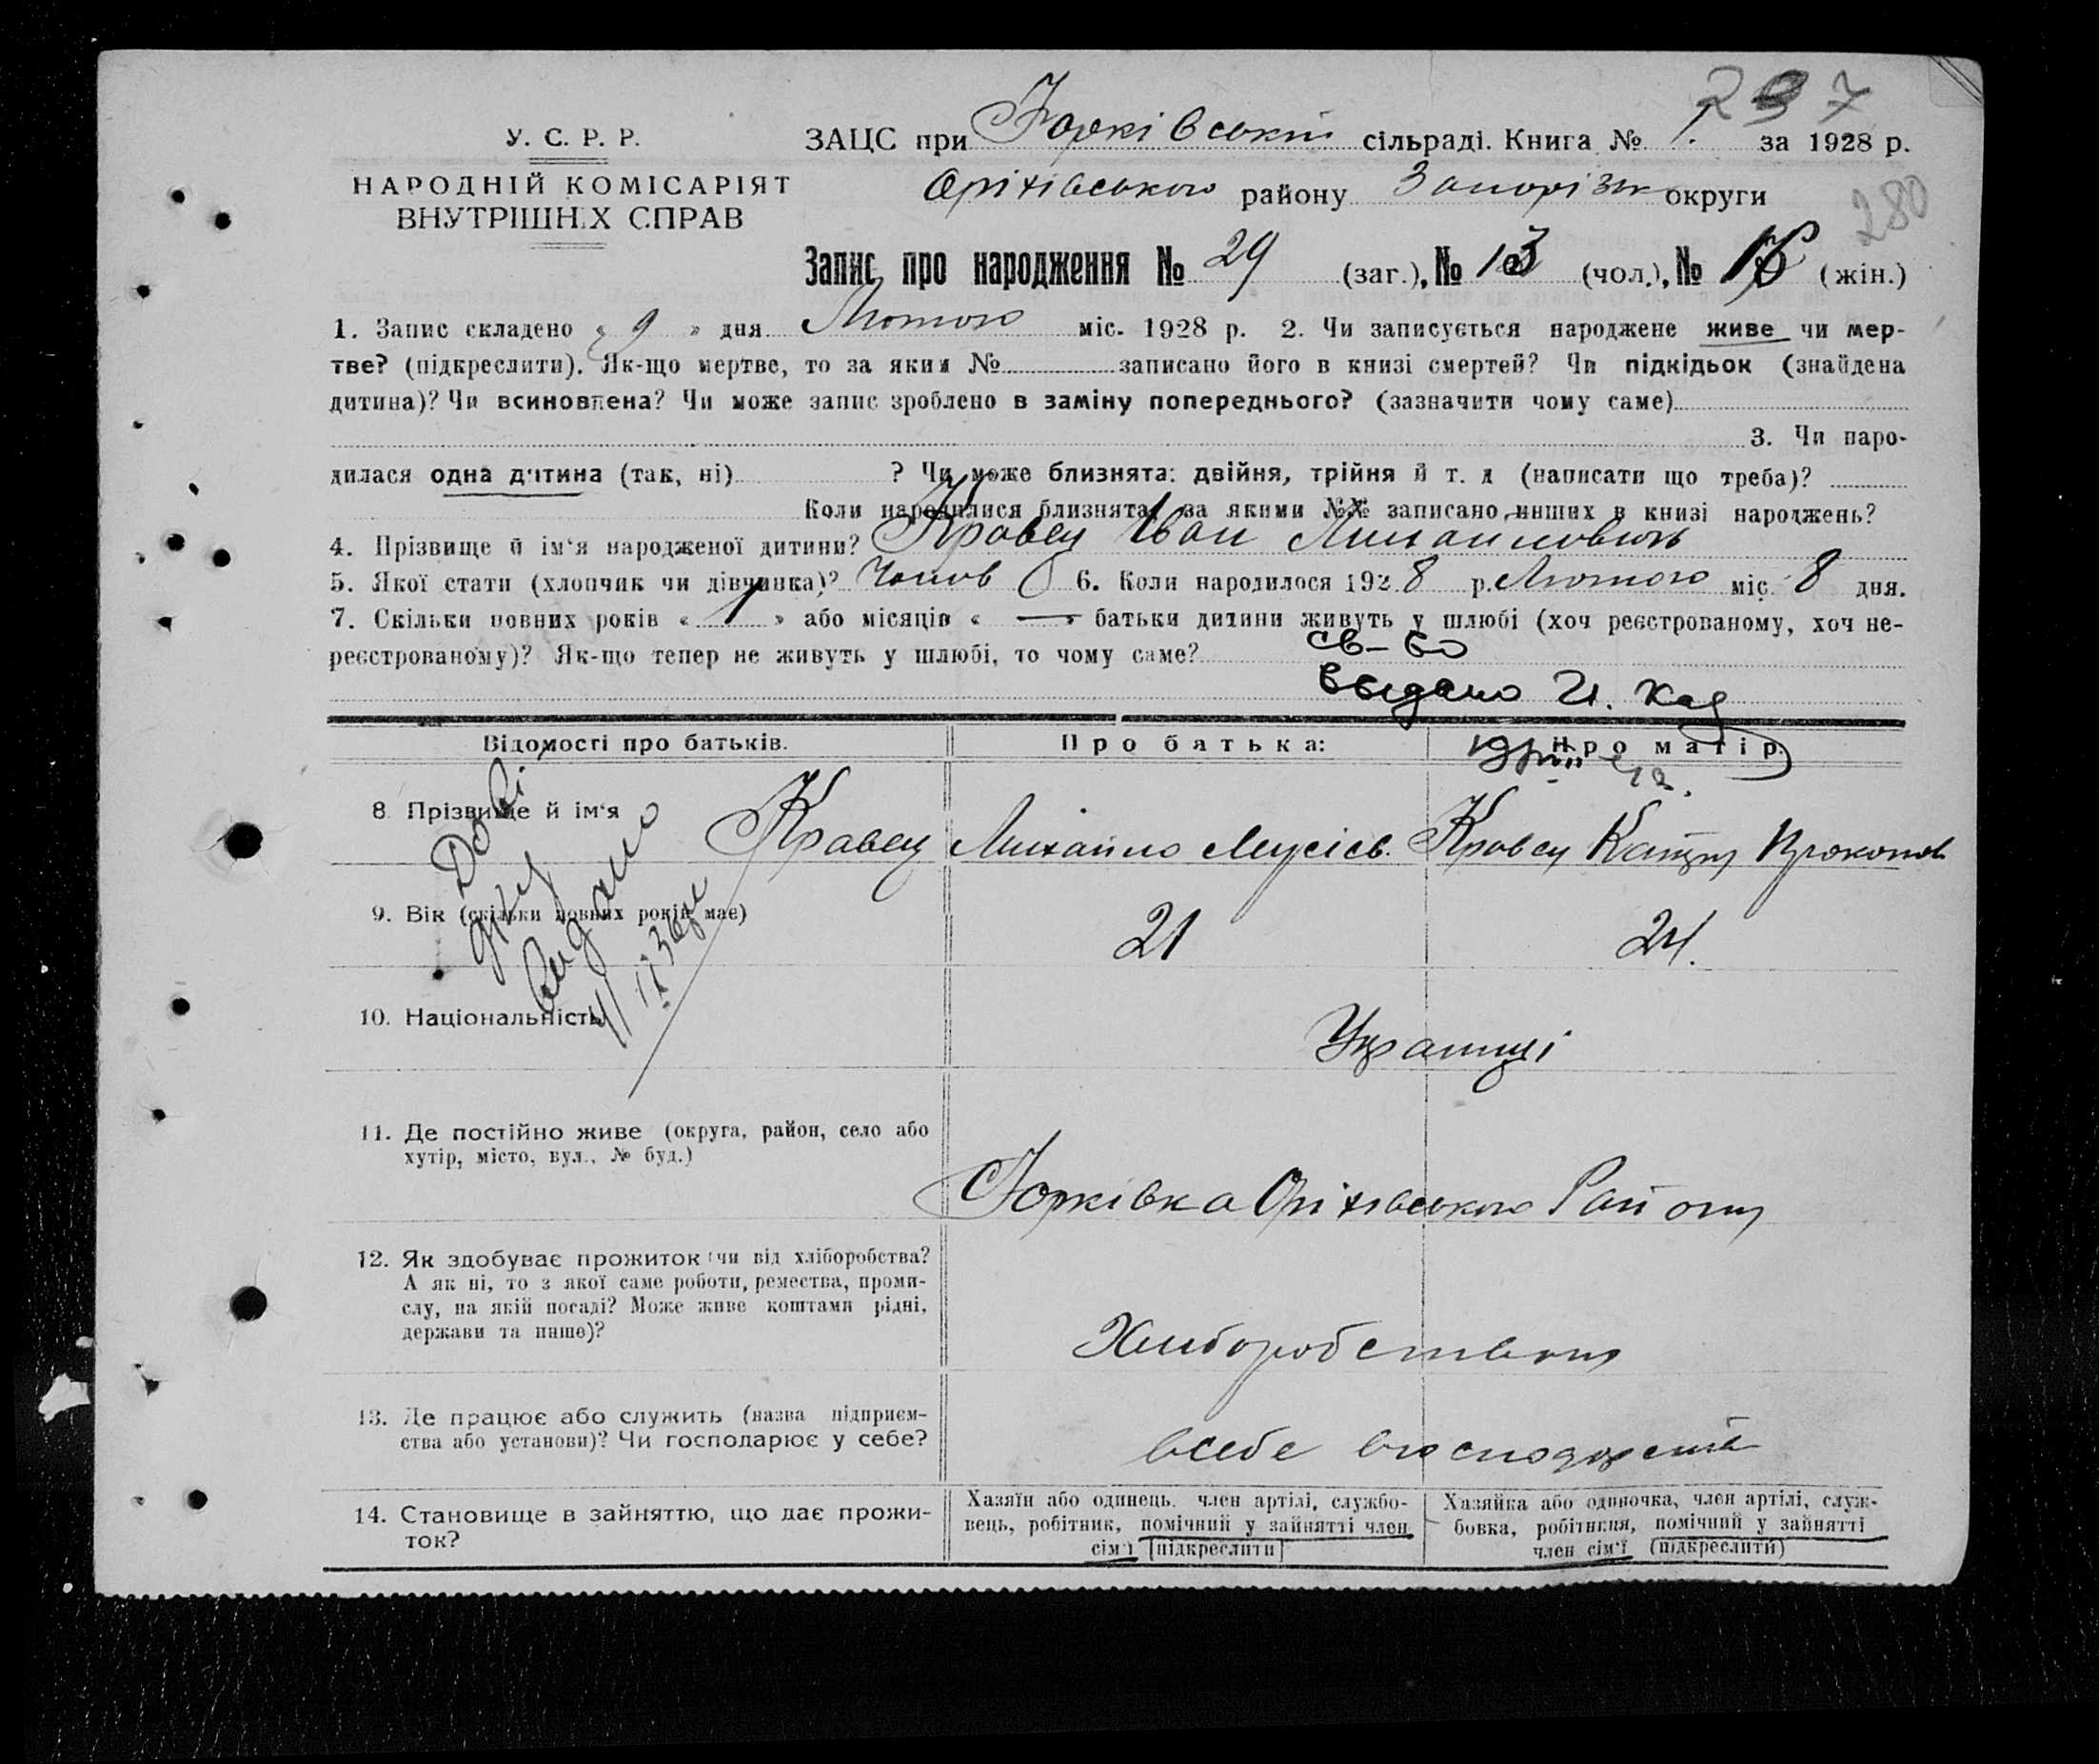 297
280
У. С. Р. Р.
НАРОДНІЙ КОМІСАРІЯТ
ВНУТРІШНІХ СПРАВ
ЗАЦС при Юрківській сільраді. Книга № 1. за 1928 р.
Оріхівського району Запорізьк округи
Запис про народження № 29 (заг.), № 13 (чол.), № (жін.)
1. Запис складено « 9 » дня Лютого міс. 1928 р. 2. Чи записується народжене живе чи мер-
тве? (підкреслити). Як-що мертве, то за яким № записано його в книзі смертей? Чи підкідьок (знайдена
дитина)? Чи всиновлена? Чи може запис зроблено в заміну попереднього? (зазначити чому саме)
3. Чи наро-
дилася одна дитина (так, ні) ? Чи може близнята: двійня, трійня й т. д (написати що треба)?
Коли народилися близнята, за якими №№ записано инших в книзі народжень?
4. Прізвище й ім'я народженої дитини? Кравец Іван Михайлович
5. Якої стати (хлопчик чи дівчинка)? Чолов 6. Коли народилося 1928 р. Лютого міс. 8 дня.
7. Скільки повних років « 1 » або місяців « — » батьки дитини живуть у шлюбі (хоч реєстрованому, хоч не-
реєстрованому)? Як-що тепер не живуть у шлюбі, то чому саме?
св-во
выдано
Відомості про батьків. Про батька: Про матір.
8. Прізвище й ім'я Кравец Михайло Мусієв. Кравец Прокопов
9. Вік (скільки повних років має) 21 24.
10. Національність Українці
11. Де постійно живе (округа, район, село або
хутір, місто, вул., № буд.)
Юрківка Оріхівського Району
12. Як здобуває прожиток (чи від хліборобства?
А як ні, то з якої саме роботи, ремества, проми-
слу, на якій посаді? Може живе коштами рідні,
держави та инше)?
Хліборобством
13. Де працює або служить (назва підприєм-
ства або установи)? Чи господарює у себе?
всебе в господарстві
14. Становище в зайняттю, що дає прожи-
ток?
Хазяїн або одинець, член артілі, службо-
вець, робітник, помічний у зайнятті член
сім'ї (підкреслити)
Хазяйка або одиночка, член артілі, служ-
бовка, робітниця, помічний у зайнятті
член сім'ї (підкреслити)